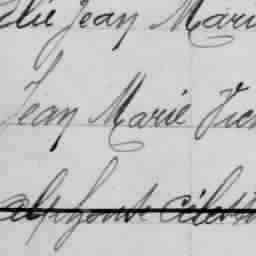 Elie Jean Mari
Jean Marie Vic
alphonse céles